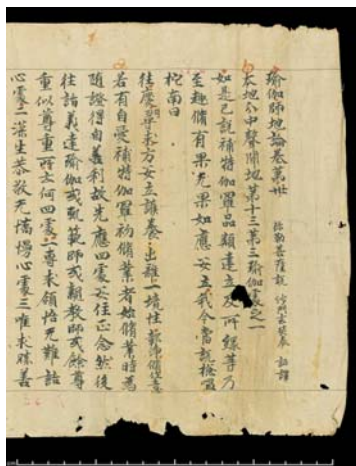 瑜伽師地論卷第卅 弥勒菩薩說 沙門玄奘奉 詔譯
本地分中聲聞地第十三第三瑜伽處之一
如是已說補特伽羅品類建立及所緣等乃
至趣脩有果无果如應安立我今當說揔嗢
柁南曰
往慶問尋求方安立護養 出離一境性 歡淨脩作意
若有自愛補特伽羅初脩業者始脩業時為
隨證得自義利故先應四處安住正念然後
往詣善達瑜伽或軌範師或親教師或餘尊
重似尊重所云何四處一專求領悟无難詰
心處二深生恭敬无憍慢心處三唯求勝善